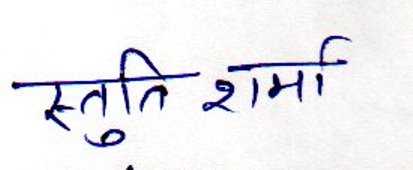 स्तुति शर्मा